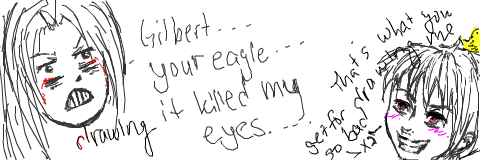 Gilbert....
your eagle...
it killed my
eyes....
drawing
that's what you
get for drawing me
so bad